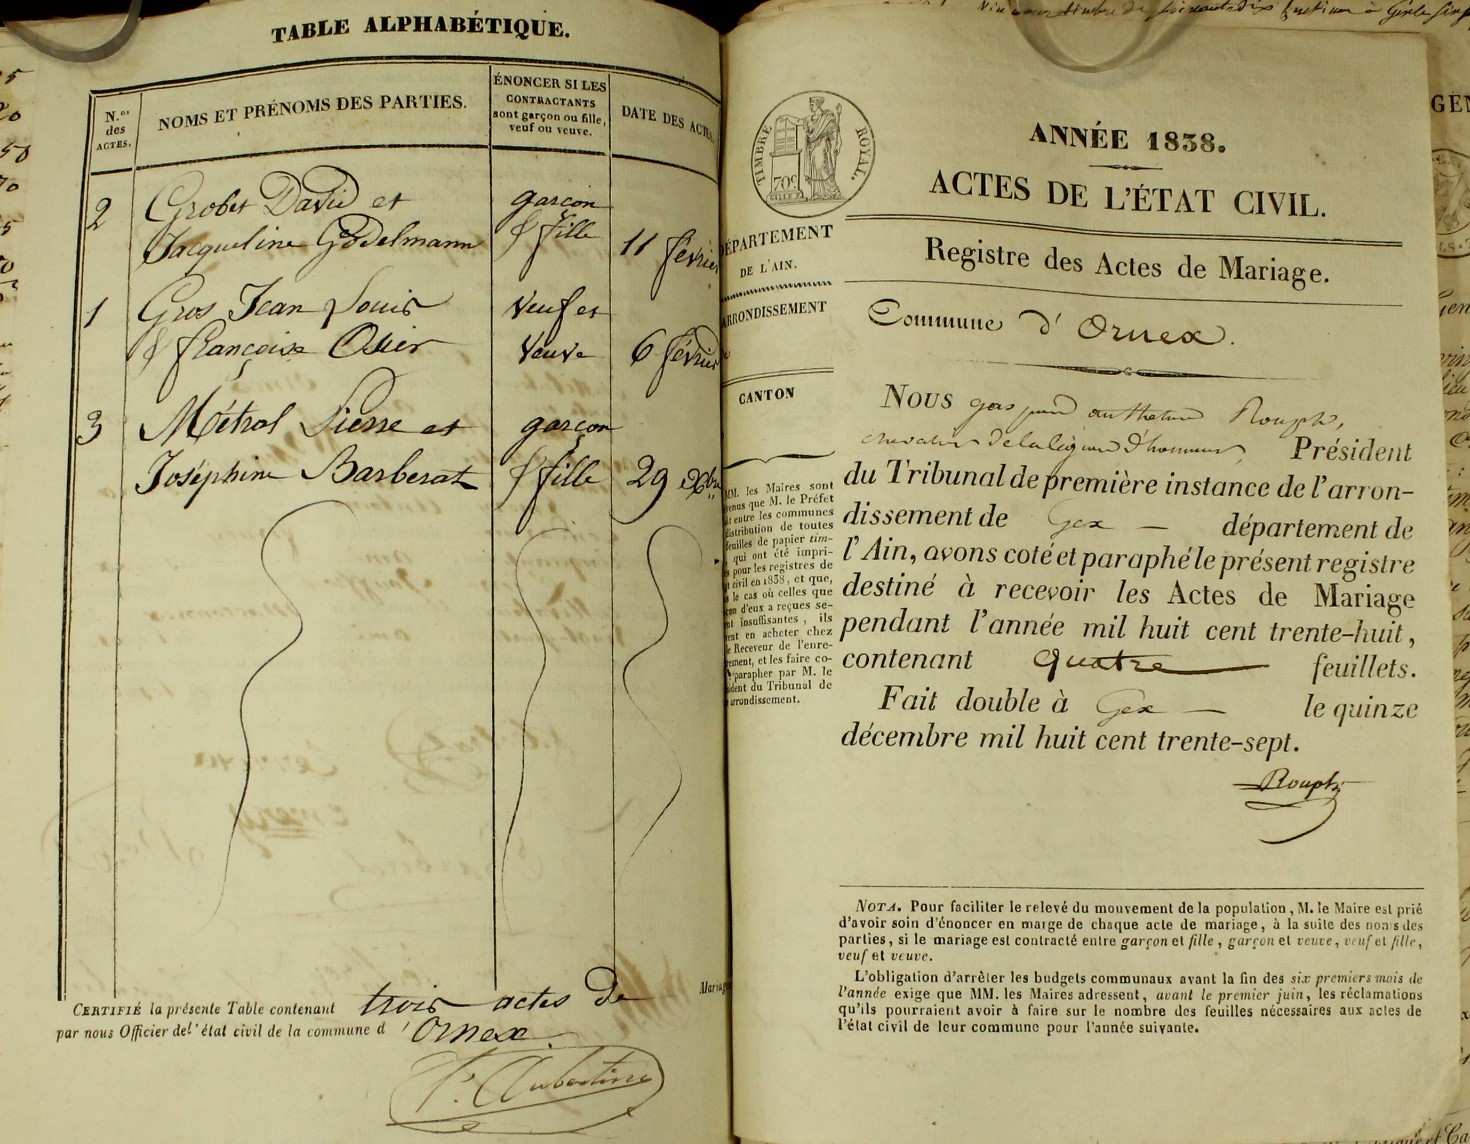 TABLE ALPHABÉTIQUE.
N.os des ACTES.
NOMS ET PRÉNOMS DES PARTIES.
ÉNONCER SI LES
CONTRACTANTS
sont garçon ou fille,
veuf ou veuve.
DATE DES ACTES.
2 Grobet David et garçon
Jacqueline Godelmann & fille 11 février
1 Gros Jean Louis Veuf et
& françoise Veuve 6 février
3 Métral Pierre et garçon
Joséphine Barberat & fille 29 Xbre
CERTIFIÉ la présente Table contenant trois actes de Mariage
par nous Officier de l'état civil de la commune d'Ornex.
TIMBRE ROYAL.
70c
ANNÉE 1838.
ACTES DE L'ÉTAT CIVIL.
DÉPARTEMENT
DE L'AIN.
ARRONDISSEMENT
CANTON
Registre des Actes de Mariage.
Commune d'Ornex.
MM. les Maires sont
que M. le Préfet
entre les communes
distribution de toutes
feuilles de papier tim-
qui ont été impri-
pour les registres de
civil en 1838, et que,
le cas où celles que
d'eux a reçues se-
insuffisantes, ils
en acheter chez
Receveur de l'enre-
et les faire co-
parapher par M. le
du Tribunal de
arrondissement.
Nous
chevalier de la légion d'honneur, Président
du Tribunal de première instance de l'arron-
dissement de Gex — département de
l'Ain, avons coté et paraphé le présent registre
destiné à recevoir les Actes de Mariage
pendant l'année mil huit cent trente-huit,
contenant quatre feuillets.
Fait double à Gex — le quinze
décembre mil huit cent trente-sept.
NOTA. Pour faciliter le relevé du mouvement de la population, M. le Maire est prié
d'avoir soin d'énoncer en marge de chaque acte de mariage, à la suite des noms des
parties, si le mariage est contracté entre garçon et fille, garçon et veuve, veuf et fille,
veuf et veuve.
L'obligation d'arrêter les budgets communaux avant la fin des six premiers mois de
l'année exige que MM. les Maires adressent, avant le premier juin, les réclamations
qu'ils pourraient avoir à faire sur le nombre des feuilles nécessaires aux actes de
l'état civil de leur commune pour l'année suivante.